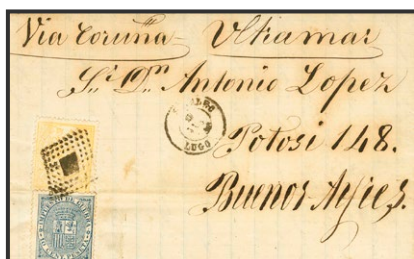 Via Coruña Ultramar
Sr. Dn. Antonio Lopez
LUGO
Potosi 148.
Buenos Ayres.